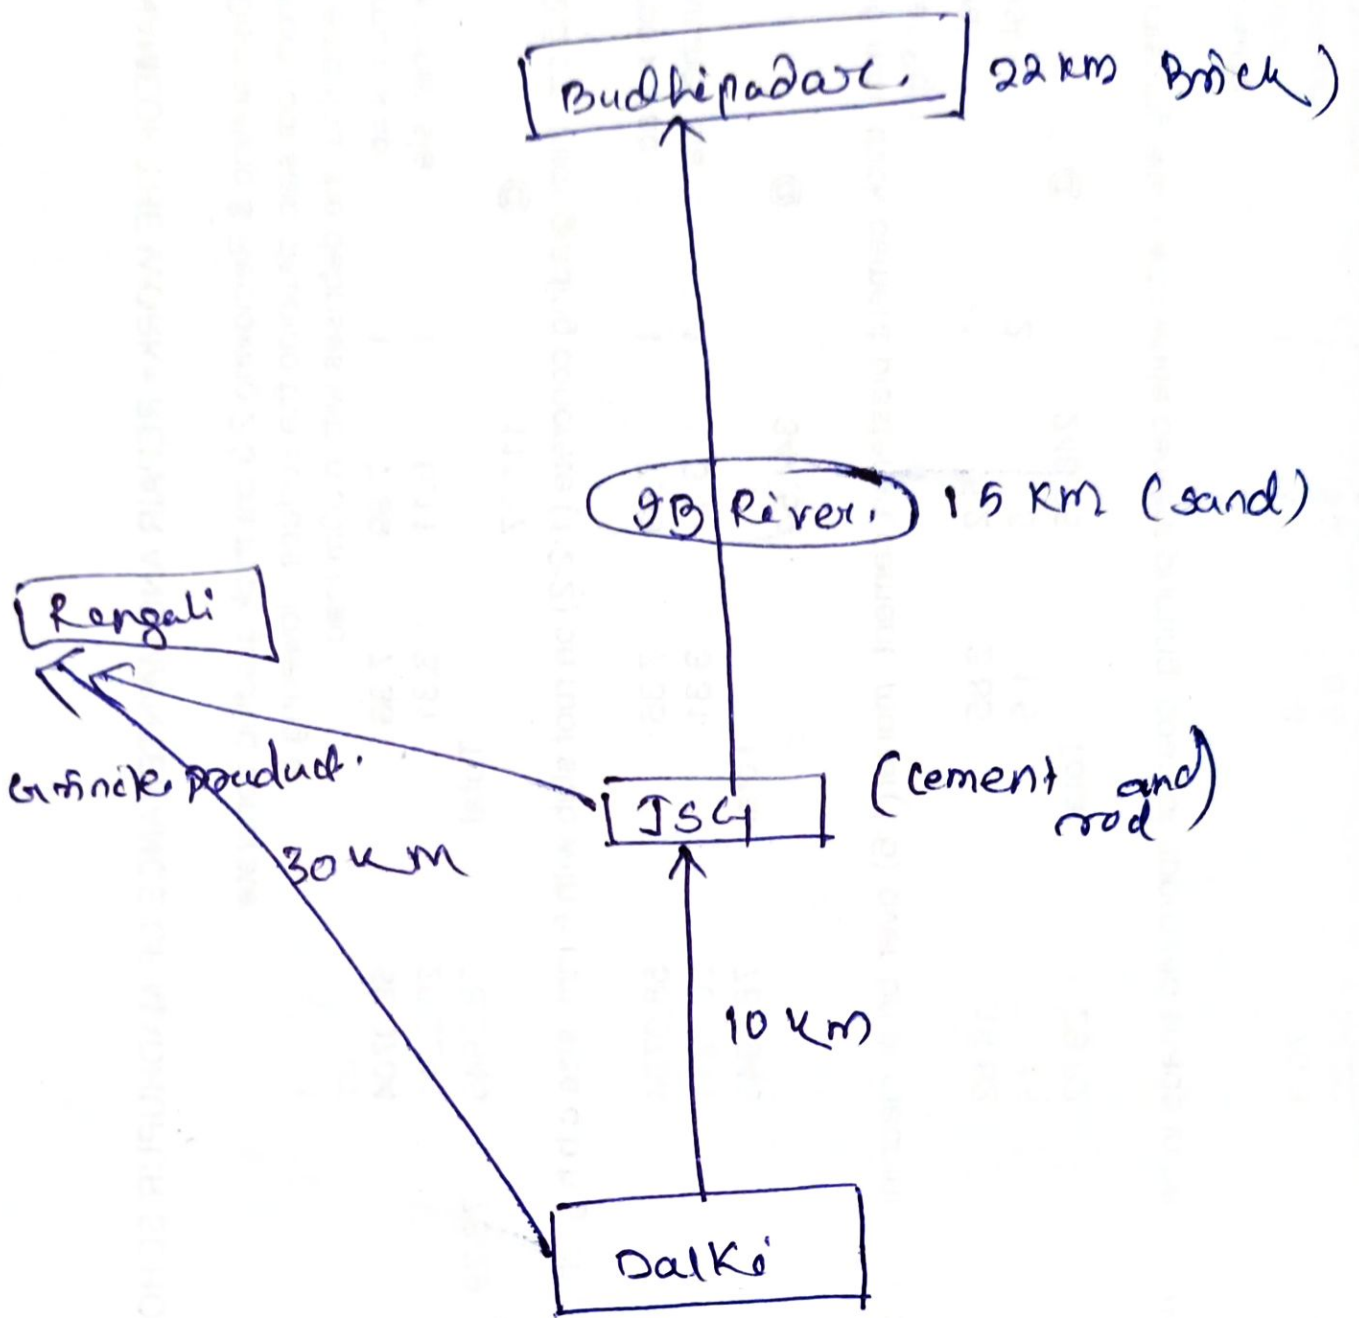 Budhipadar. 22 km Brick)
IB River. 15 KM (sand)
Rengali
product.
JSG (cement and
rod)
30 KM
10 km
Dalki